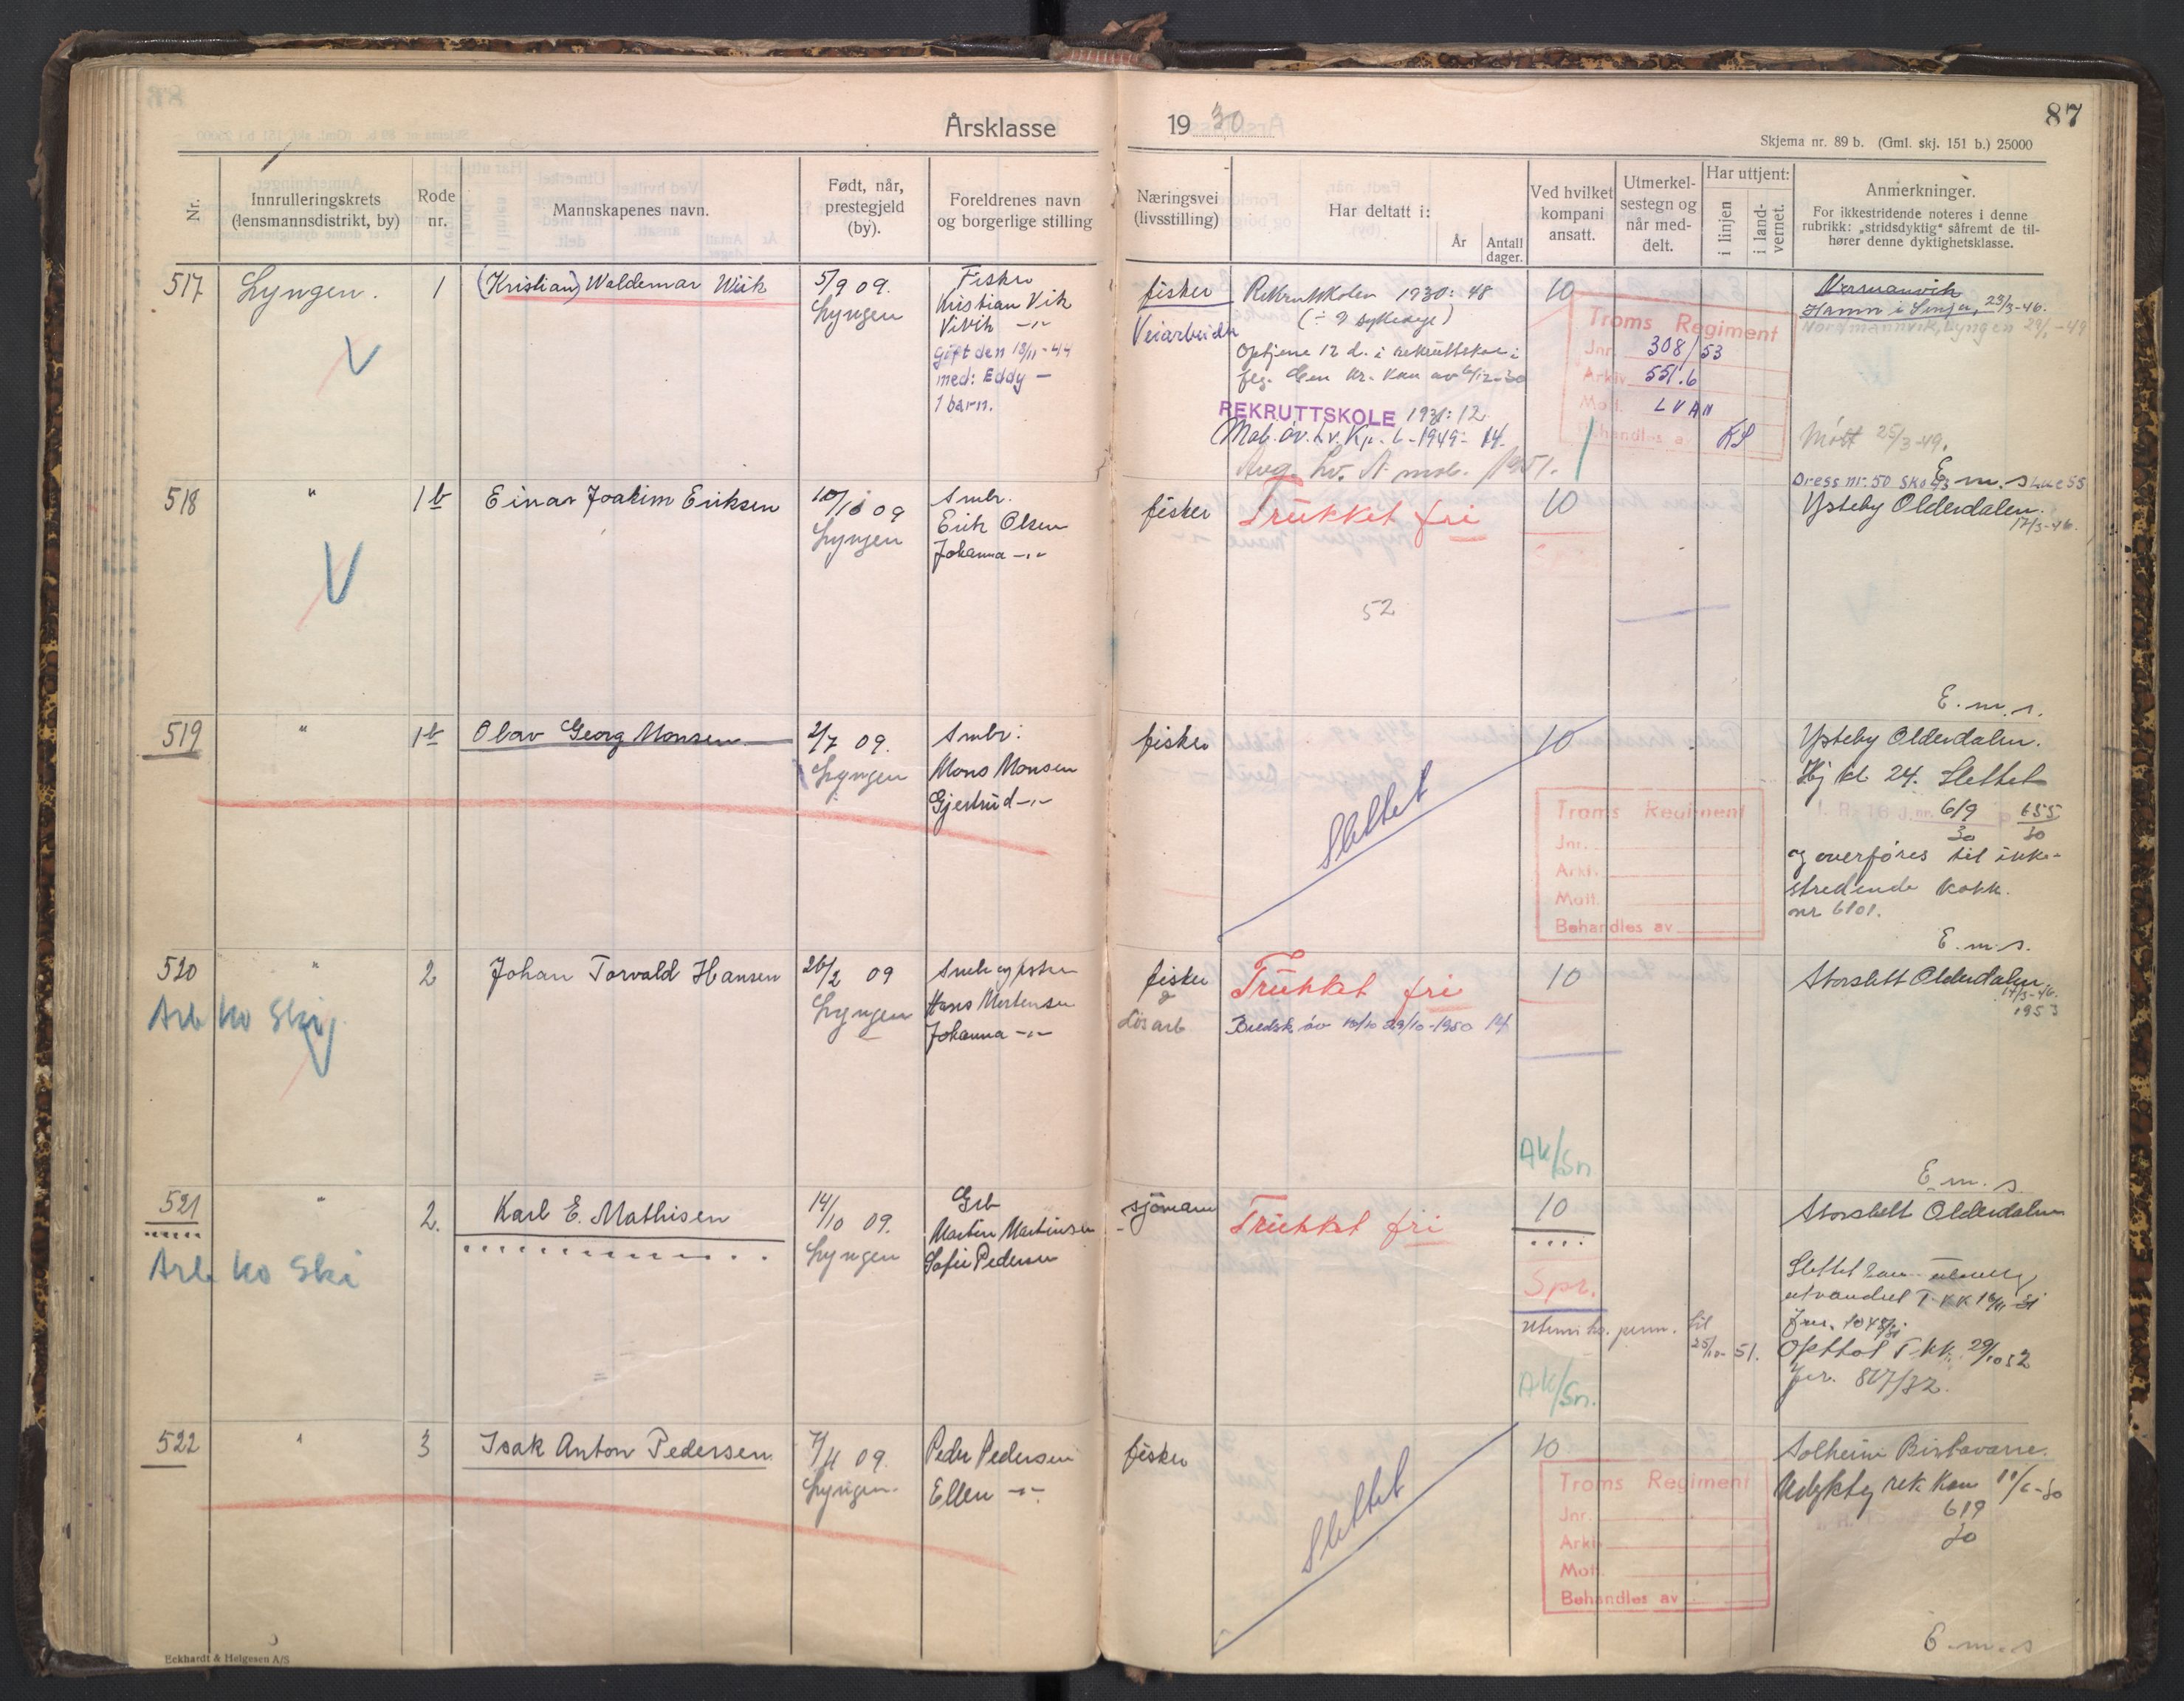 87
Årsklasse 1930
Skjema nr. 89 b. (Gml. skj. 151 b.) 25000
Nr.
Innrulleringskrets
(lensmannsdistrikt, by)
Rode
nr.
Mannskapenes navn.
Født, når,
prestegjeld
(by).
Foreldrenes navn
og borgerlige stilling
Næringsvei
(livsstilling)
Har deltatt i:
År
Antall
dager.
Ved hvilket
kompani
ansatt.
Utmerkel-
sestegn og
når med-
delt.
Har uttjent:
i linjen
i land-
vernet.
Anmerkninger.
For ikkestridende noteres i denne
rubrikk: „stridsdyktig" såfremt de til-
hører denne dyktighetsklasse.
517
Lyngen.
1
(Kristian) Waldemar Wiik
5/9 09.
Lyngen
Fisker
Kristian Vik
Vivik -"-
gift den 13/11-44
med: Eddy -
1 barn.
fisker
Veiarbeider
Rekruttskolen 1930: 48
(÷ 9 sykedage)
REKRUTTSKOLE 1931: 12.
Mob. øv. Lv. Kp. 6-1949- 14.
10
Troms Regiment
Jnr. 308/53
Arkiv 551.6
Mott. LVAN
Behandles av KS
Hamn i Senja, 23/3-46.
Nordmannvik, Lyngen
Møtt 25/3-49.
E. m. s.
Dress nr. 50 Sko 43 Lue 55
518
"
1b
Einar Joakim Eriksen
10/10 09
Lyngen
Smbr.
Erik Olsen
Johanna -"-
fisker
Trukket fri
52
10
Ysteby Olderdalen.
17/3-46.
E. m. s.
519
"
1b
Olav Georg Monsen
2/7 09.
Lyngen
Smbr.
Mons Monsen
Gjertrud -"-
fisker
Slettet
10
Troms Regiment
Jnr.
Arkiv
Mott.
Behandles av
Ysteby Olderdalen.
Hj kl. 24. Slettet
I. R. 16 J. nr. 619/30 p 655/30
og overføres til ikke-
stridende kokk.
nr 6101.
E. m. s.
520
"
2
Arb ko Ski
Johan Torvald Hansen
26/2 09
Lyngen
Smbr og fisker
Hans Mortensen
Johanna -"-
fisker
&
Løsarb
Trukket fri
Bredsk øv 10/10 23/10-1950 14
10
Ak/Sn
Storslett Olderdalen
17/3-46.
1953
E. m. s.
521
"
2.
Arb ko Ski
Karl E. Mathisen
14/10 09.
Lyngen
Grb
Martin Martinsen
Sofie Pedersen
sjømann
Trukket fri
10
Spr.
Utenriks. perm. til
25/10-51.
Ak/Sn.
Storslett Olderdalen
Slettet som ulovlig
utvandret T. KK 16/11 31
Jnr. 1048/31
Opttat T. kk. 29/10 32
Jnr. 817/32.
522
"
3
Isak Anton Pedersen
7/11 09.
Lyngen.
Peder Pedersen
Ellen -"-
fisker
Slettet
10
Troms Regiment
Jnr.
Arkiv
Mott.
Behandles av
Solheim Birtavarre.
Udyktig rek. kom 11/6-30
619
30
E. m. s
Eckhardt & Helgesen A/S